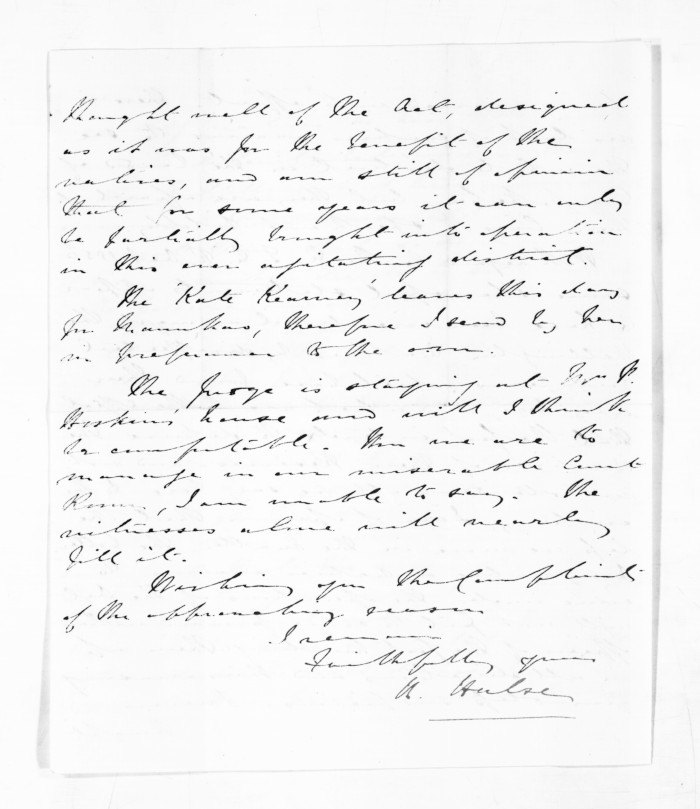 thought well of the Act, designed
as it was for the benefit of the
natives, and am still of opinion
that for some years it can only
be partially brought into operation
in this ever agitating district.
The "Kate Kearney" leaves this day
for Manukau, therefore I send by her
in preference to the
The Judge is staying at Mrs
Hoskins' house and will I think
be comfortable. How we are to
manage in our miserable Court
Room, I am unable to say. The
witnesses alone will nearly
fill it.
Wishing you the Compliments
of the approaching season
I remain
Faithfully yours
Hulse